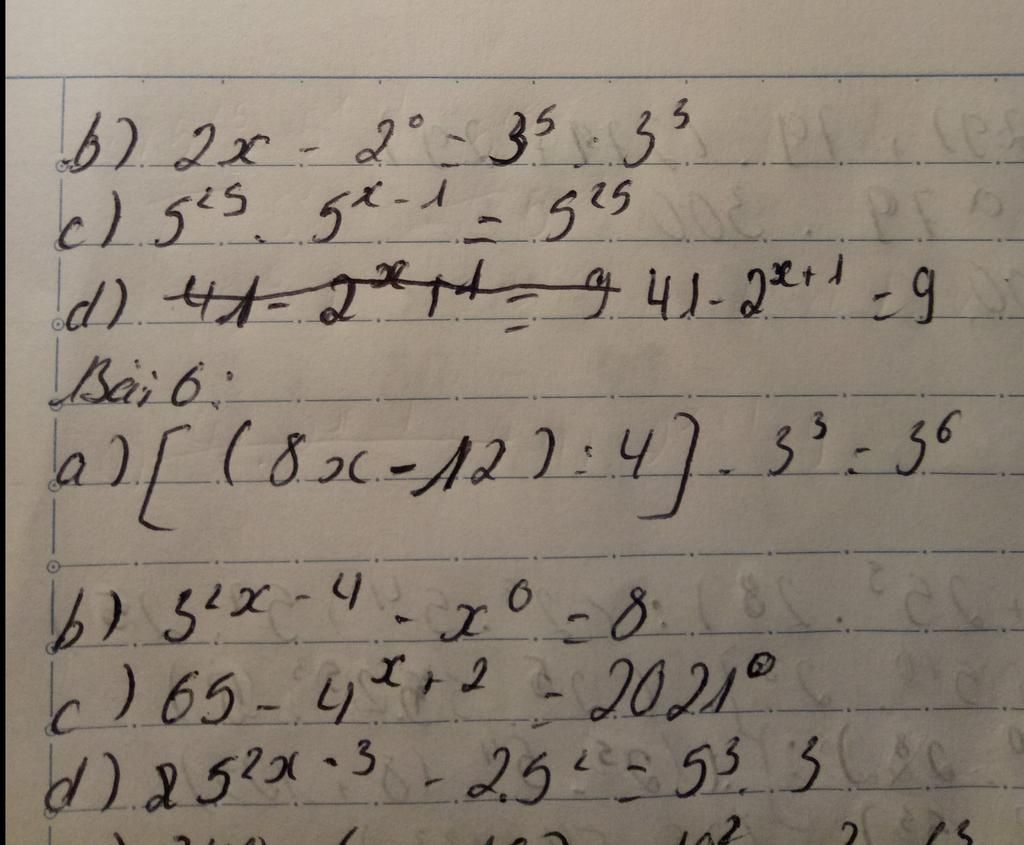 b) 2x - 2⁰ = 3⁵ : 3³
c) 5²⁵ . 5ˣ⁻¹ = 5²⁵
d) 41 - 2ˣ⁺¹ = 9 41 - 2ˣ⁺¹ = 9
Bài 6:
a) [(8x - 12) : 4] . 3³ = 3⁶
b) 3²ˣ⁻⁴ - x⁰ = 8
c) 65 - 4ˣ⁺² = 2021⁰
d) 5²ˣ⁻³ - 2.5² = 5³.3